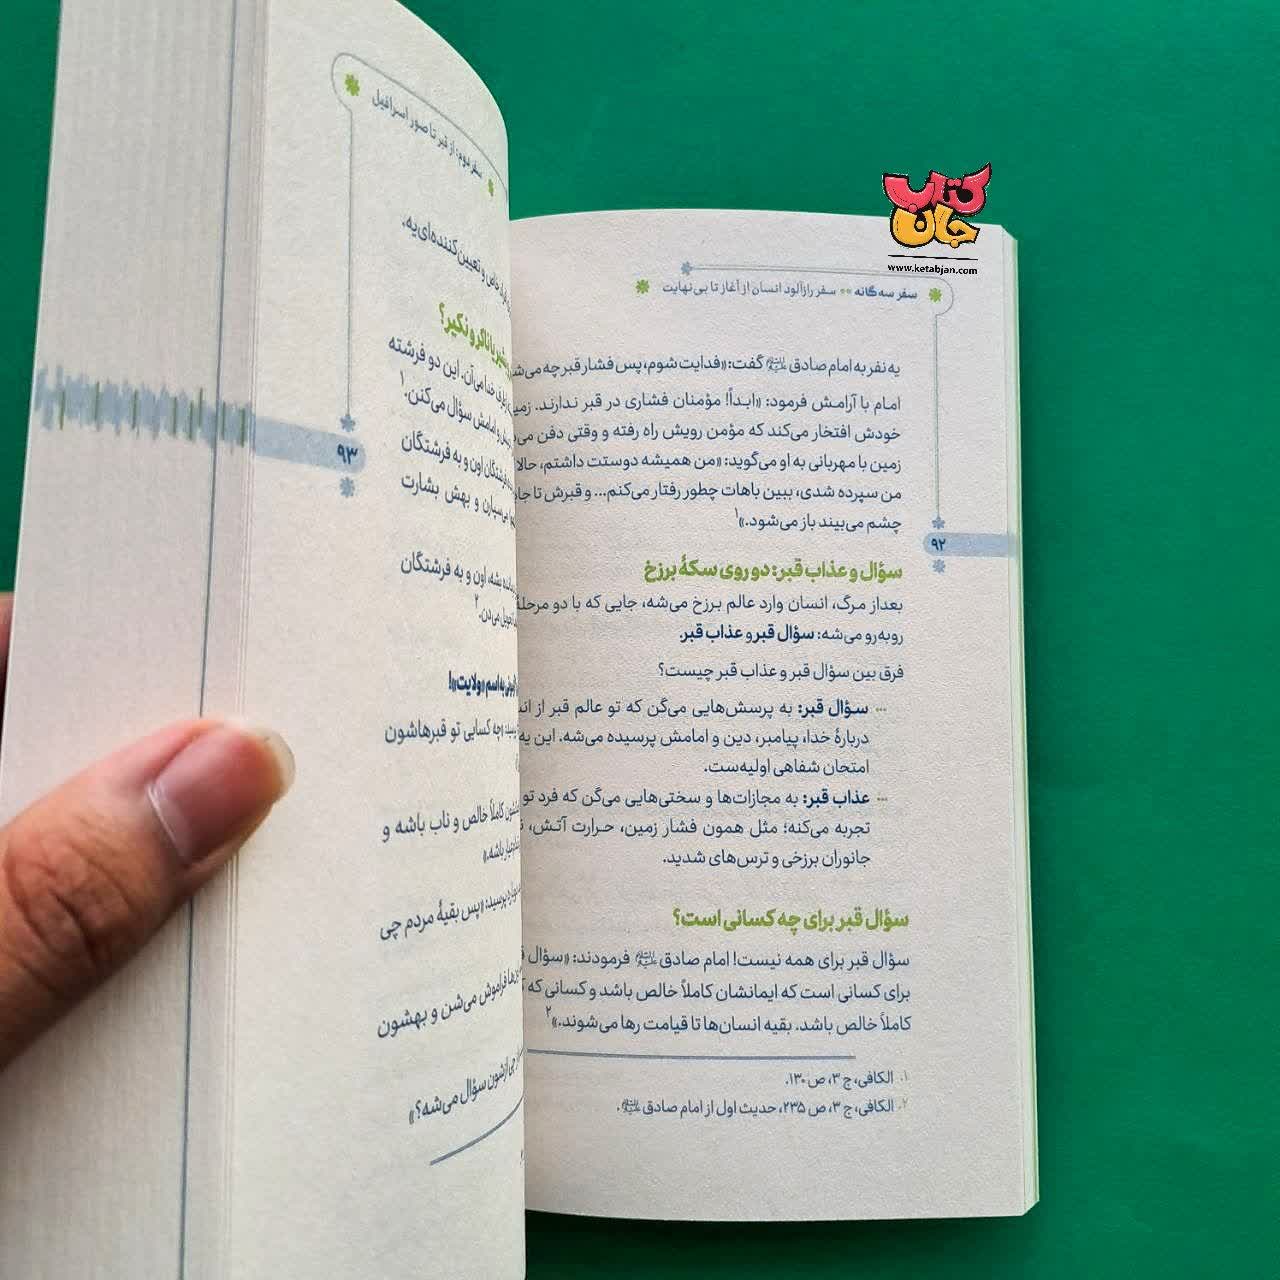 کتاب جان
www.ketabjan.com
سفر سه‌گانه ** سفر رازآلود انسان از آغاز تا بی‌نهایت
یه نفر به امام صادق گفت: «فدایت شوم، پس فشار قبر چه
امام با آرامش فرمود: «ابداً! مؤمنان فشاری در قبر ندارند.
خودش افتخار می‌کند که مؤمن رویش راه رفته و وقتی دفن
زمین با مهربانی به او می‌گوید: «من همیشه دوستت داشتم، حالا
من سپرده شدی، ببین باهات چطور رفتار می‌کنم... و قبرش تا
چشم می‌بیند باز می‌شود.»۱
۹۲
سؤال و عذاب قبر: دو روی سکۀ برزخ
بعداز مرگ، انسان وارد عالم برزخ می‌شه، جایی که با دو مرحلۀ
روبه‌رو می‌شه: سؤال قبر و عذاب قبر.
فرق بین سؤال قبر و عذاب قبر چیست؟
سؤال قبر: به پرسش‌هایی می‌گن که تو عالم قبر از
دربارۀ خدا، پیامبر، دین و امامش پرسیده می‌شه. این یه
امتحان شفاهی اولیه‌ست.
عذاب قبر: به مجازات‌ها و سختی‌هایی می‌گن که فرد تو
تجربه می‌کنه؛ مثل همون فشار زمین، حرارت آتش،
جانوران برزخی و ترس‌های شدید.
سؤال قبر برای چه کسانی است؟
سؤال قبر برای همه نیست! امام صادق فرمودند: «سؤال
برای کسانی است که ایمانشان کاملاً خالص باشد و کسانی که
کاملاً خالص باشد. بقیه انسان‌ها تا قیامت رها می‌شوند.»۲
۱. الکافی، ج ۳، ص ۱۳۰.
۲. الکافی، ج ۳، ص ۲۳۵، حدیث اول از امام صادق.
سفر دوم: از قبر تا صور اسرافیل
خاص و تعیین‌کننده‌ای یه.
یا ناکر و نکیر؟
خدا می‌آن. این دو فرشته
و امامش سؤال می‌کنن.۱
۹۳
فرشتگان اون و به فرشتگان
می‌سپارن و بهش بشارت
نشه، اون و به فرشتگان
تحویل می‌دن.۲
به اسم «ولایت»!
چه کسایی تو قبرهاشون
کاملاً خالص و ناب باشه و
باشه.»
پرسید: «پس بقیۀ مردم چی
فراموش می‌شن و بهشون
ازشون سؤال می‌شه؟»